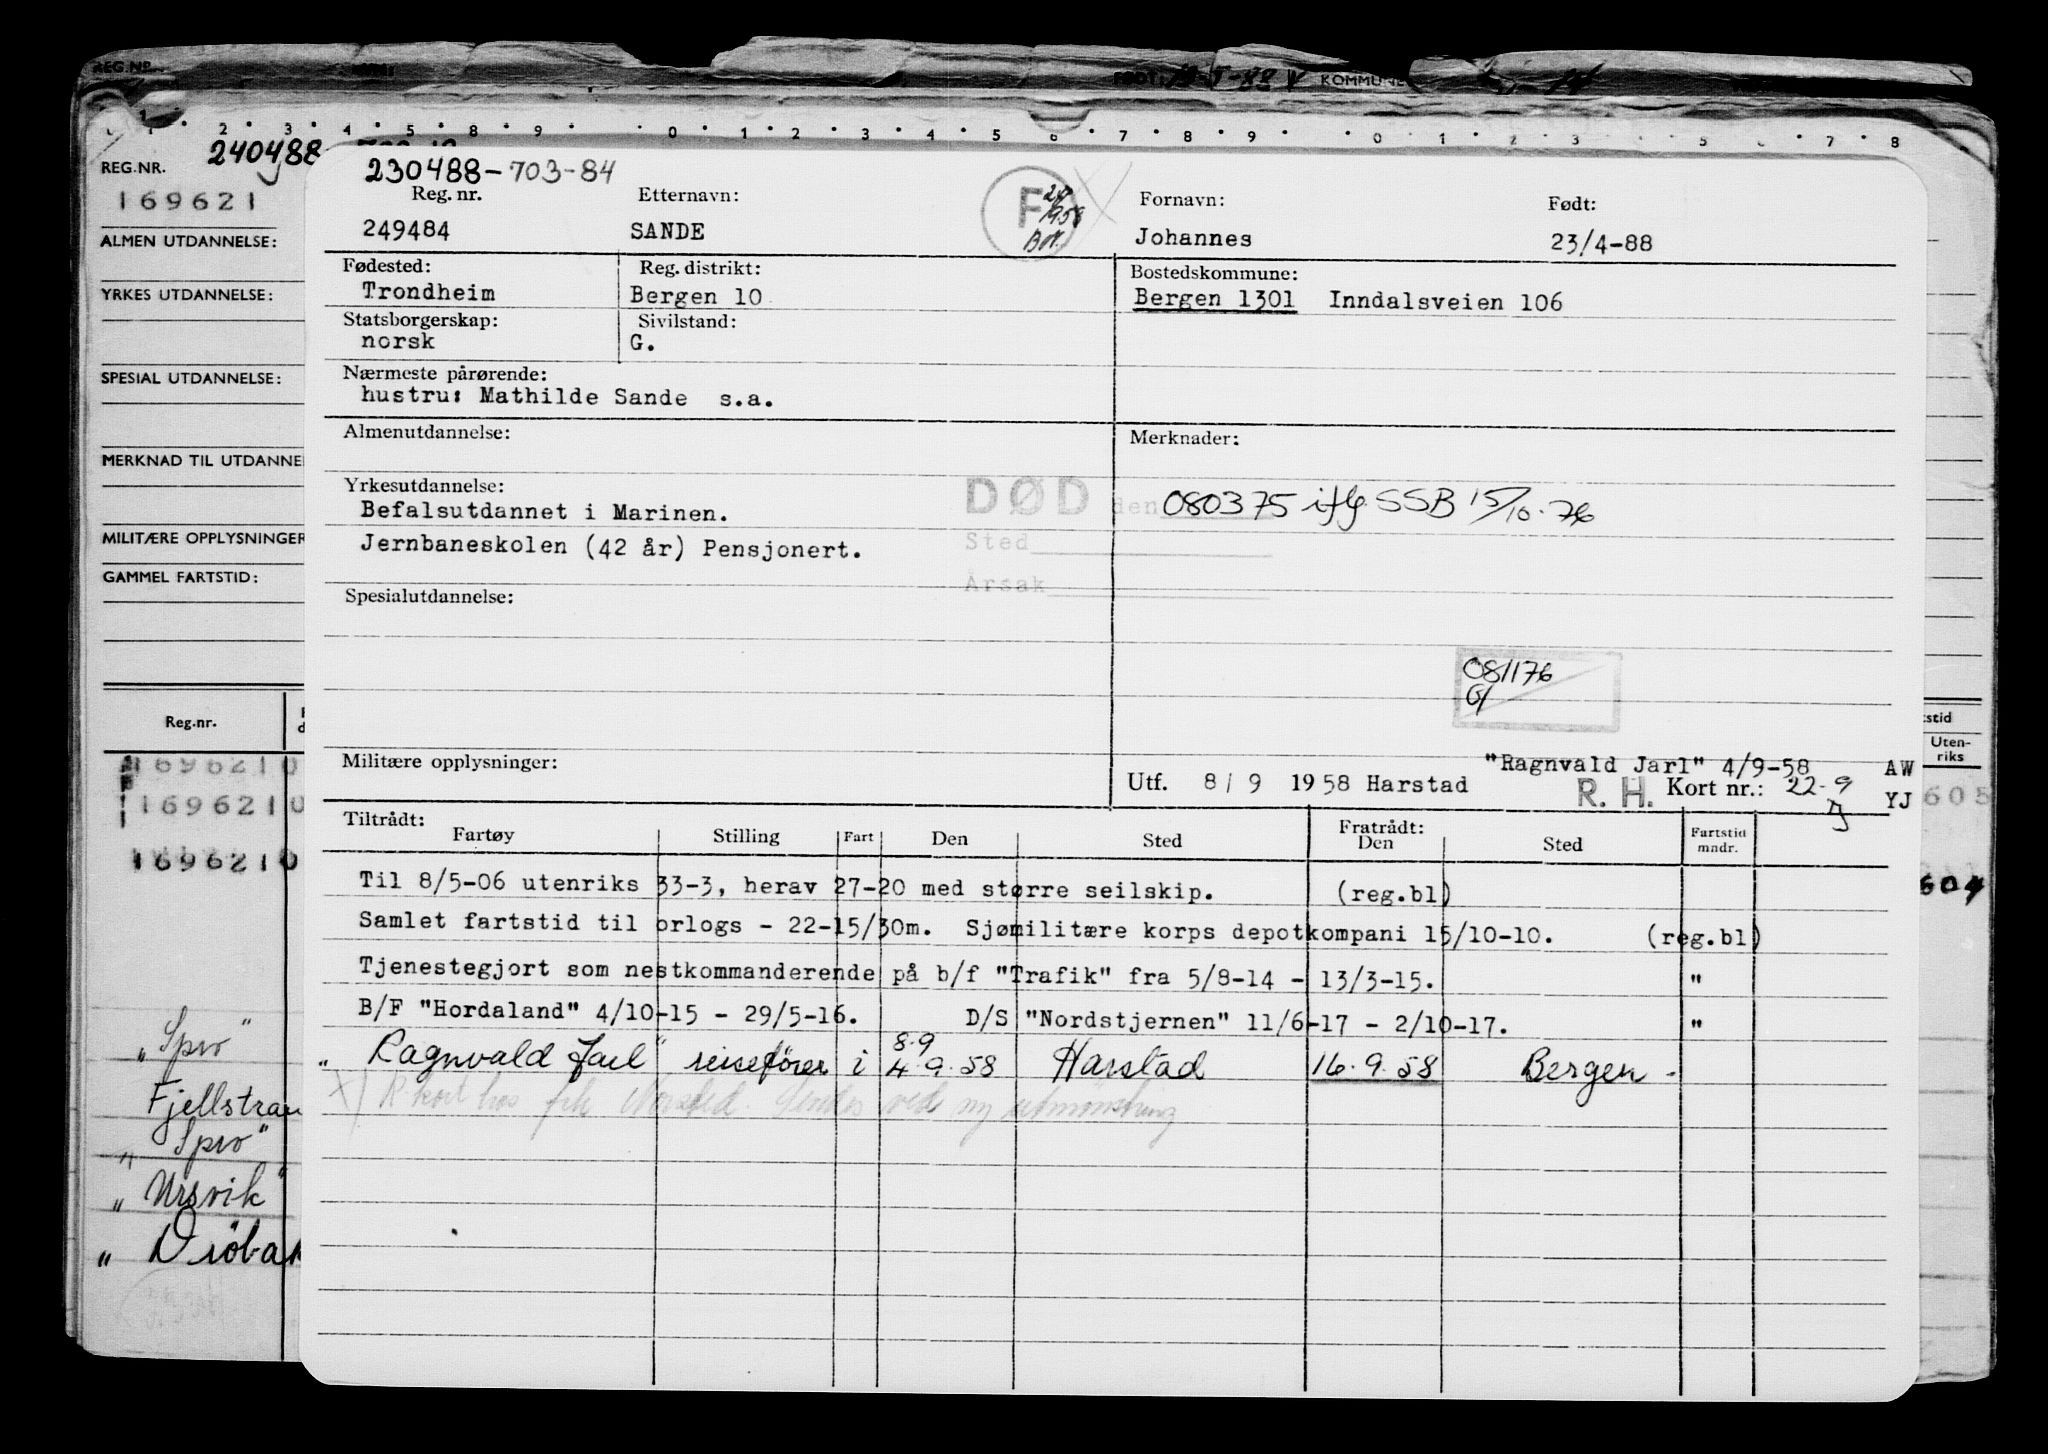 REG.NR.
FØDT: KOMMUNE
1 2 3 4 5 8 9 0 1 2 3 4 5 6 7 8 9 0 1 2 3 5 6 7 8
240488
REG.NR.
169621
ALMEN UTDANNELSE:
YRKES UTDANNELSE:
SPESIAL UTDANNELSE:
MERKNAD TIL UTDANNE
MILITÆRE OPPLYSNINGER
GAMMEL FARTSTID:
Reg.nr.
1696210
1696210
1696210
"Spro"
Fjellstran
"Spro"
"Ursvik"
"Drøbak
230488-703-84
Reg. nr. Etternavn: Fornavn: Født:
F
1958
249484 SANDE Johannes 23/4-88
Fødested: Reg. distrikt: Bostedskommune:
Trondheim Bergen 10 Bergen 1301 Inndalsveien 106
Statsborgerskap: Sivilstand:
norsk G.
Nærmeste pårørende:
hustru: Mathilde Sande s.a.
Almenutdannelse: Merknader:
Yrkesutdannelse:
DØD den 080375 iflg. SSB 15/10-76
Befalsutdannet i Marinen.
Sted
Jernbaneskolen (42 år) Pensjonert.
Årsak
Spesialutdannelse:
081176
Militære opplysninger:
"Ragnvald Jarl" 4/9-58 AW
Utf. 8/9 1958 Harstad R. H. Kort nr.: 22-9 YJ
Tiltrådt: Fratrådt:
Fartøy Stilling Fart Den Sted Den Sted Fartstid mndr.
Til 8/5-06 utenriks 33-3, herav 27-20 med større seilskip. (reg.bl)
Samlet fartstid til orlogs - 22-15/30m. Sjømilitære korps depotkompani 15/10-10. (reg.bl)
Tjenestegjort som nestkommanderende på b/f "Trafik" fra 5/8-14 - 13/3-15. "
B/F "Hordaland" 4/10-15 - 29/5-16. D/S "Nordstjernen" 11/6-17 - 2/10-17. "
8.9
"Ragnvald Jarl" reisefører i 4.9.58 Harstad 16.9.58 Bergen -
x) R-kort hos Sendes ved ny utmønstring
tstid
Uten-
riks
605
604